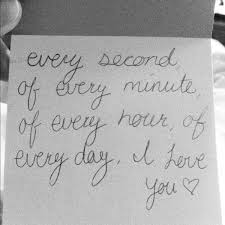 every second,
of every minute,
of every hour, of
every day. I love
you ♡